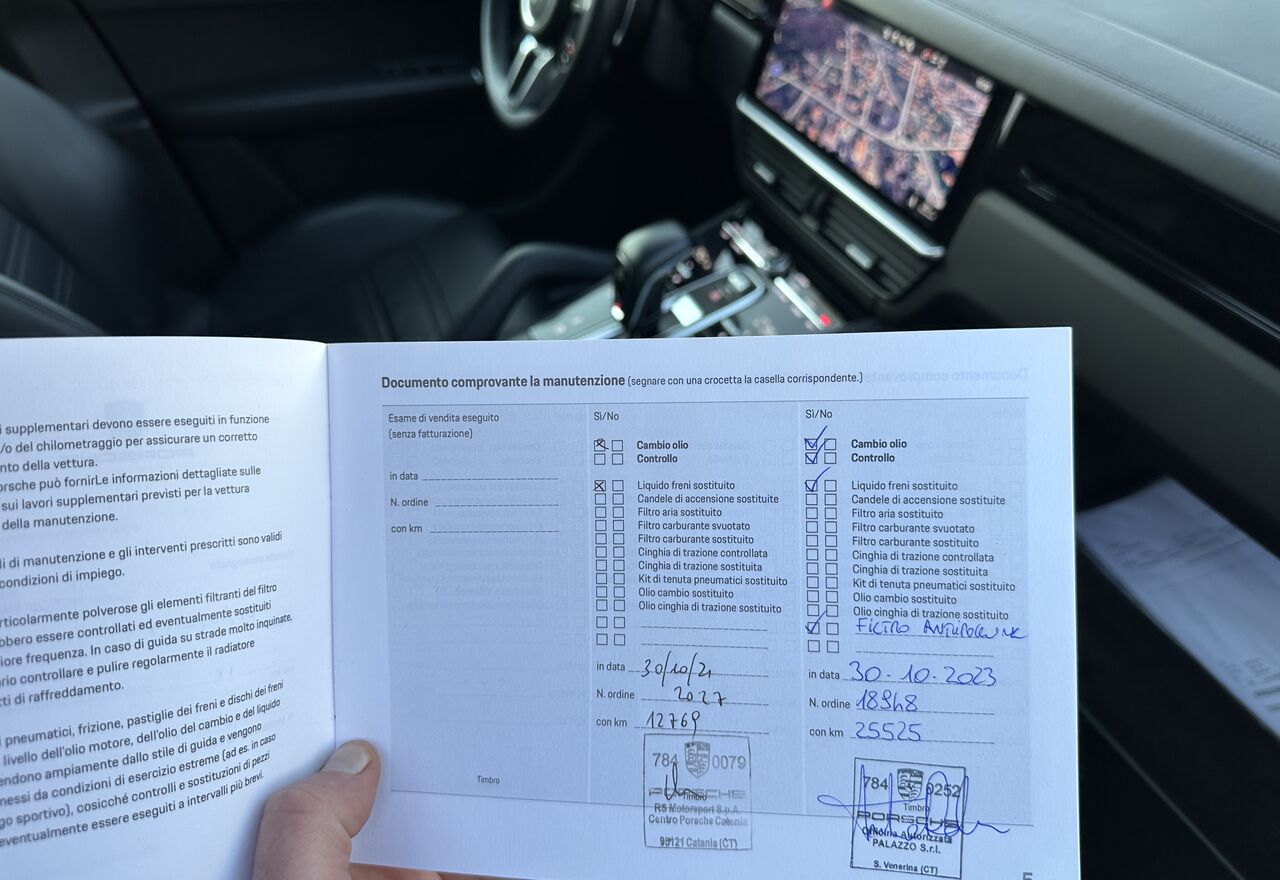 i supplementari devono essere eseguiti in funzione
/o del chilometraggio per assicurare un corretto
nto della vettura.
orsche può fornirLe informazioni dettagliate sulle
sui lavori supplementari previsti per la vettura
della manutenzione.
li di manutenzione e gli interventi prescritti sono validi
condizioni di impiego.
rticolarmente polverose gli elementi filtranti del filtro
bbero essere controllati ed eventualmente sostituiti
iore frequenza. In caso di guida su strade molto inquinate,
rio controllare e pulire regolarmente il radiatore
tti di raffreddamento.
pneumatici, frizione, pastiglie dei freni e dischi dei freni
livello dell'olio motore, dell'olio del cambio e del liquido
endono ampiamente dallo stile di guida e vengono
nessi da condizioni di esercizio estreme (ad es. in caso
go sportivo), cosicché controlli e sostituzioni di pezzi
eventualmente essere eseguiti a intervalli più brevi.
Documento comprovante la manutenzione (segnare con una crocetta la casella corrispondente.)
Esame di vendita eseguito
(senza fatturazione)
in data
N. ordine
con km
Timbro
Sì/No
Cambio olio
Controllo
Liquido freni sostituito
Candele di accensione sostituite
Filtro aria sostituito
Filtro carburante svuotato
Filtro carburante sostituito
Cinghia di trazione controllata
Cinghia di trazione sostituita
Kit di tenuta pneumatici sostituito
Olio cambio sostituito
Olio cinghia di trazione sostituito
in data 30/10/21
N. ordine 2027
con km 12769
784 0079
Timbro
PORSCHE
RS Motorsport S.p.A.
Centro Porsche Catania
95121 Catania (CT)
Sì/No
Cambio olio
Controllo
Liquido freni sostituito
Candele di accensione sostituite
Filtro aria sostituito
Filtro carburante svuotato
Filtro carburante sostituito
Cinghia di trazione controllata
Cinghia di trazione sostituita
Kit di tenuta pneumatici sostituito
Olio cambio sostituito
Olio cinghia di trazione sostituito
FILTRO ANTIPOLLINE
in data 30-10-2023
N. ordine 18948
con km 25525
784 0252
Timbro
PORSCHE
Officina Autorizzata
PALAZZO S.r.l.
S. Venerina (CT)
5